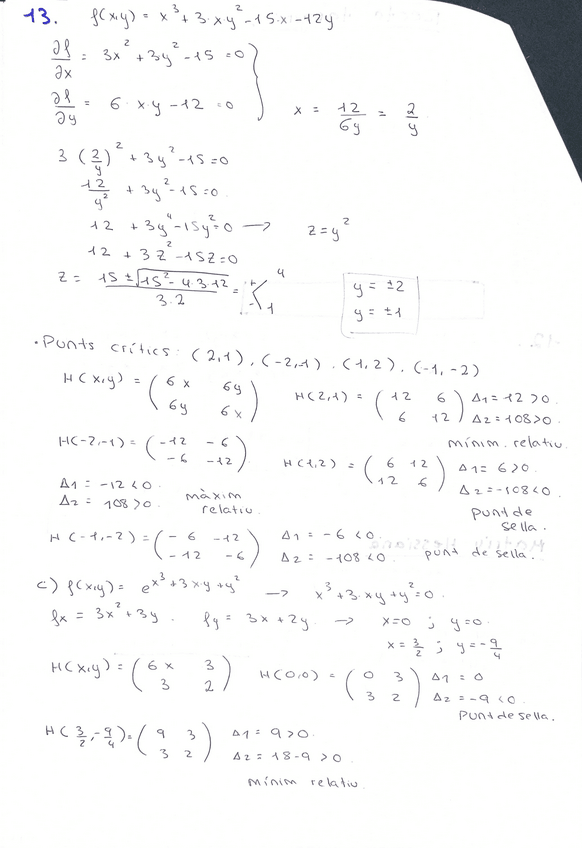 13. f(x,y) = x³ + 3·xy² - 15·x - 12y
∂f/∂x = 3x² + 3y² - 15 = 0
∂f/∂y = 6·x·y - 12 = 0
x = 12/6y = 2/y
3 (2/y)² + 3y² - 15 = 0
12/y² + 3y² - 15 = 0.
12 + 3y⁴ - 15y² = 0 → z = y²
12 + 3z² - 15z = 0
z = (15 ± √(15² - 4·3·12))/(3·2) = + 4
- 1
y = ±2
y = ±1
· Punts crítics: (2,1), (-2,-1), (1,2), (-1,-2)
H(x,y) = (6x 6y
6y 6x)
H(2,1) = (12 6
6 12) Δ1 = 12 > 0.
Δ2 = 108 > 0.
mínim. relatiu.
H(-2,-1) = (-12 -6
-6 -12)
Δ1 = -12 < 0
Δ2 = 108 > 0.
màxim
relatiu.
H(1,2) = (6 12
12 6) Δ1 = 6 > 0.
Δ2 = -108 < 0.
punt de
sella.
H(-1,-2) = (-6 -12
-12 -6) Δ1 = -6 < 0
Δ2 = -108 < 0. punt de sella.
c) f(x,y) = e^(x³+3xy+y²) → x³ + 3·xy + y² = 0.
fx = 3x² + 3y. fy = 3x + 2y. → x=0 ; y=0.
x = 3/2 ; y = -9/4
H(x,y) = (6x 3
3 2)
H(0,0) = (0 3
3 2) Δ1 = 0
Δ2 = -9 < 0.
Punt de sella.
H(3/2, -9/4) = (9 3
3 2) Δ1 = 9 > 0.
Δ2 = 18-9 > 0
mínim relatiu.